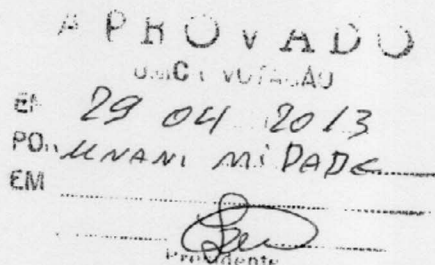 APROVADO
ÚNICA VOTAÇÃO
EM 29 04 2013
POR UNANIMIDADE
EM
Presidente